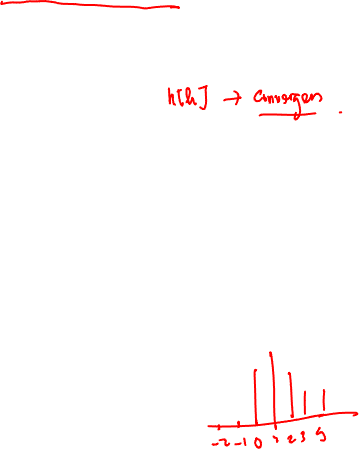 h[k] → Converges
-2 -1 0 1 2 3 5